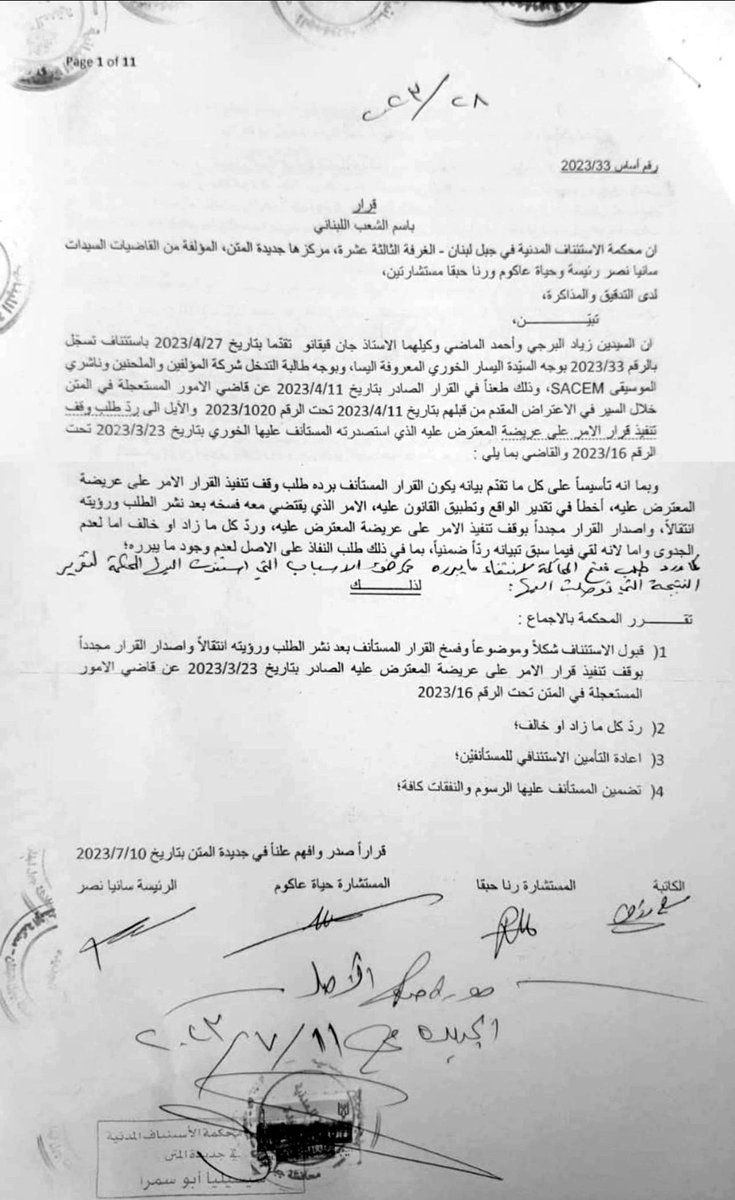 Page 1 of 11
٢٠٢٣/٢٨
رقم أساس 2023/33
قرار
باسم الشعب اللبناني
ان محكمة الاستئناف المدنية في جبل لبنان - الغرفة الثالثة عشرة، مركزها جديدة المتن، المؤلفة من القاضيات السيدات
سانيا نصر رئيسة وحياة عاكوم ورنا حبقا مستشارتين،
لدى التدقيق والمذاكرة،
تبيّـــــــــــن،
ان السيدين زياد البرجي وأحمد الماضي وكيلهما الاستاذ جان قيقانو تقدّما بتاريخ 2023/4/27 باستئناف تسجّل
بالرقم 2023/33 بوجه السيّدة اليسار الخوري المعروفة اليسا، وبوجه طالبة التدخل شركة المؤلفين والملحنين وناشري
الموسيقى SACEM، وذلك طعناً في القرار الصادر بتاريخ 2023/4/11 عن قاضي الامور المستعجلة في المتن
خلال السير في الاعتراض المقدم من قبلهم بتاريخ 2023/4/11 تحت الرقم 2023/1020 والآيل الى ردّ طلب وقف
تنفيذ قرار الامر على عريضة المعترض عليه الذي استصدرته المستأنف عليها الخوري بتاريخ 2023/3/23 تحت
الرقم 2023/16 والقاضي بما يلي :
وبما انه تأسيساً على كل ما تقدّم بيانه يكون القرار المستأنف برده طلب وقف تنفيذ القرار الامر على عريضة
المعترض عليه، أخطأ في تقدير الواقع وتطبيق القانون عليه، الامر الذي يقتضي معه فسخه بعد نشر الطلب ورؤيته
انتقالاً، واصدار القرار مجدداً بوقف تنفيذ الامر على عريضة المعترض عليه، وردّ كل ما زاد او خالف اما لعدم
الجدوى واما لانه لقي فيما سبق تبيانه ردّاً ضمنياً، بما في ذلك طلب النفاذ على الاصل لعدم وجود ما يبرره؛
كما ورد طلب فتح المحاكمة لانتفاء ما يبرره في ضوء الاسباب التي استندت اليها المحكمة لتقرير
النتيجة التي توصلت اليها؛
لذلـــــــــك
تقـــــرر المحكمة بالاجماع :
1( قبول الاستئناف شكلاً وموضوعاً وفسخ القرار المستأنف بعد نشر الطلب ورؤيته انتقالاً واصدار القرار مجدداً
بوقف تنفيذ قرار الامر على عريضة المعترض عليه الصادر بتاريخ 2023/3/23 عن قاضي الامور
المستعجلة في المتن تحت الرقم 2023/16
2( ردّ كل ما زاد او خالف؛
3( اعادة التأمين الاستئنافي للمستأنفيْن؛
4( تضمين المستأنف عليها الرسوم والنفقات كافة؛
قراراً صدر وافهم علناً في جديدة المتن بتاريخ 2023/7/10
الكاتبة المستشارة رنا حبقا المستشارة حياة عاكوم الرئيسة سانيا نصر
صورة طبق الأصل
الجديدة في ٢٠٢٣/٧/١١
محكمة الأستئناف المدنية
في جديدة المتن
سيسيليا أبو سمرا